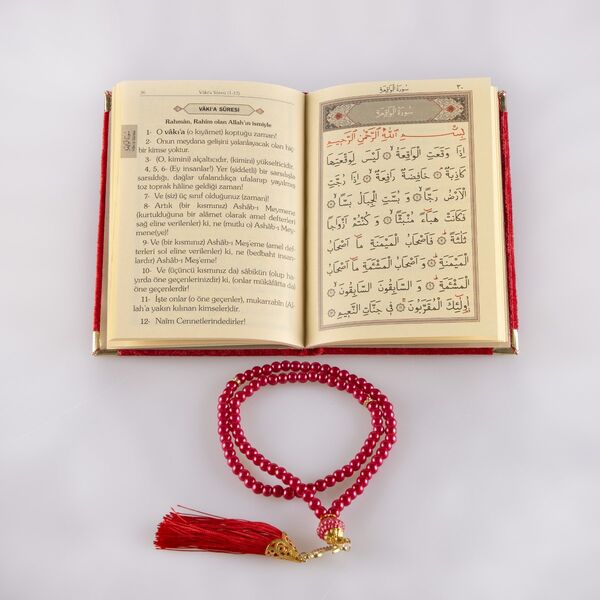 36 Vâkı'a Sûresi (1-12)
VÂKI'A SÛRESİ
Rahmân, Rahîm olan Allah'ın ismiyle
1- O vâkı'a (o kıyâmet) koptuğu zaman!
2- Onun meydana gelişini yalanlayacak olan hiç-
bir kimse yoktur.
3- (O, kimini) alçaltıcıdır, (kimini) yükselticidir.
4, 5, 6- (Ey insanlar!) Yer (şiddetli) bir sarsılışla
sarsıldığı, dağlar ufalandıkça ufalanıp yayılmış
toz toprak hâline geldiği zaman!
7- Ve (siz) üç sınıf olduğunuz (zaman)!
8- Artık (bir kısmınız) Ashâb-ı Meymene
(kurtulduğuna bir alâmet olarak amel defterleri
sağ eline verilenler) ki, ne (mutlu o) Ashâb-ı Mey-
mene(ye)!
9- Ve (bir kısmınız) Ashâb-ı Meş'eme (amel def-
terleri sol eline verilenler) ki, ne (bedbaht insan-
lardır) Ashâb-ı Meş'eme!
10- Ve (üçüncü kısmınız da) sâbikūn (olup ha-
yırda öne geçenlerinizdir) ki, (onlar mükâfâtta da)
öne geçenlerdir!
11- İşte onlar (o öne geçenler), mukarrabîn (Al-
lah'a yakın kılınan kimseler)dir.
12- Naîm Cennetlerindedirler!
سُورَةُ الْوَاقِعَةِ ٣٠
سُورَةُ الْوَاقِعَةِ
بِسْمِ اللّٰهِ الرَّحْمٰنِ الرَّحِيمِ
اِذَا وَقَعَتِ الْوَاقِعَةُ ۞ لَيْسَ لِوَقْعَتِهَا
كَاذِبَةٌ ۞ خَافِضَةٌ رَافِعَةٌ ۞ اِذَا رُجَّتِ
الْاَرْضُ رَجًّا ۞ وَ بُسَّتِ الْجِبَالُ بَسًّا ۞
فَكَانَتْ هَبَاءً مُنْبَثًّا ۞ وَ كُنْتُمْ اَزْوَاجًا
ثَلٰثَةً ۞ فَاَصْحَابُ الْمَيْمَنَةِ مَا اَصْحَابُ
الْمَيْمَنَةِ ۞ وَ اَصْحَابُ الْمَشْئَمَةِ مَا اَصْحَابُ
الْمَشْئَمَةِ ۞ وَ السَّابِقُونَ السَّابِقُونَ ۞
اُولٰئِكَ الْمُقَرَّبُونَ ۞ فِي جَنَّاتِ النَّعِيمِ ۞